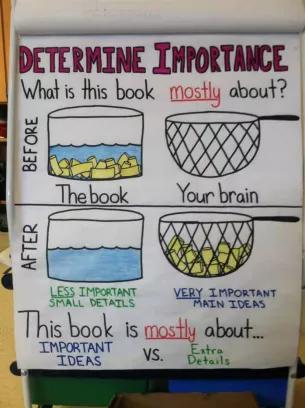 DETERMINE IMPORTANCE
What is this book mostly about?
BEFORE
The book
Your brain
AFTER
LESS IMPORTANT
SMALL DETAILS
VERY IMPORTANT
MAIN IDEAS
This book is mostly about...
IMPORTANT
IDEAS
VS.
Extra
Details